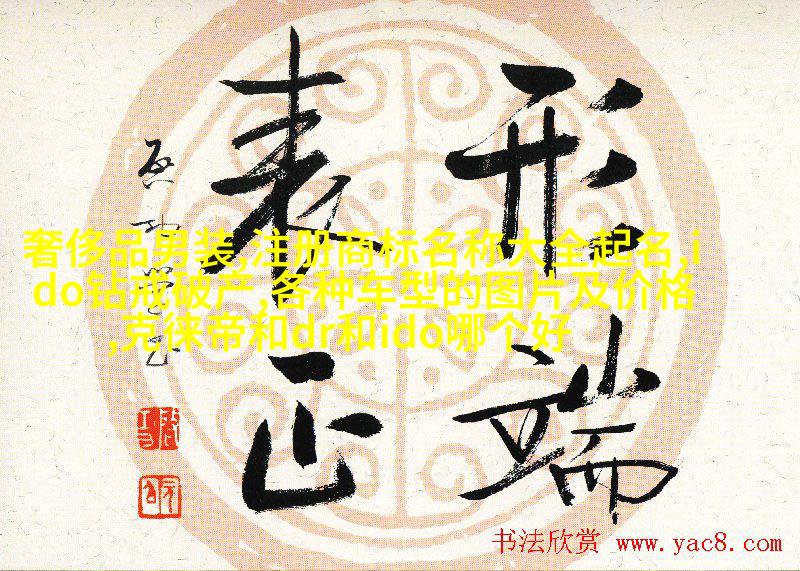 形端
表正
启功题
奢侈品男装,注册商标名称大全起名,i
do钻戒破产,各种车型的图片及价格
,克徕帝和dr和ido哪个好
书法欣赏 www.yac8.com